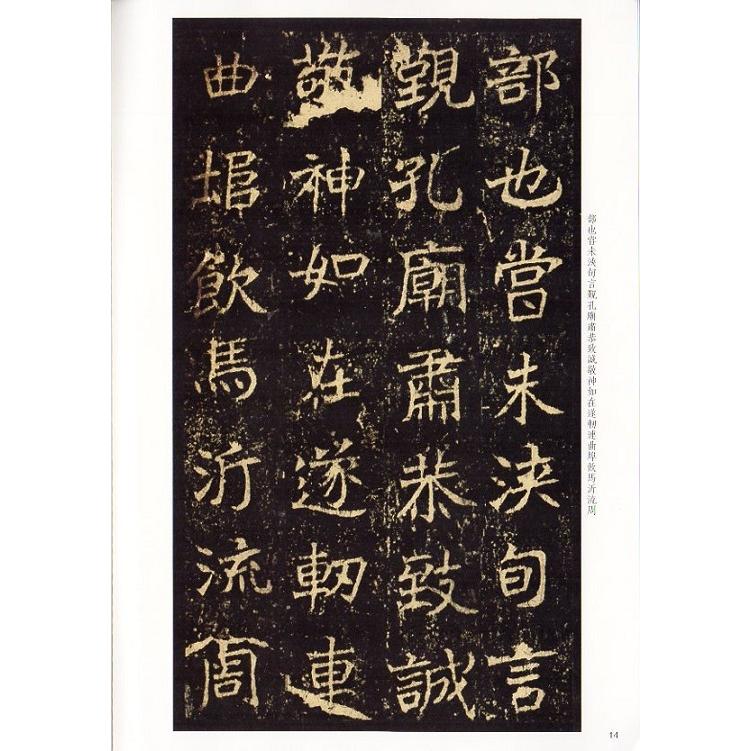 部也嘗未浹旬言
覲孔廟肅恭致誠
敬神如在遂軔連
曲垖飲馬沂流周
部也嘗未浹旬言覲孔廟肅恭致誠敬神如在遂軔連曲埠飲馬沂流周
14